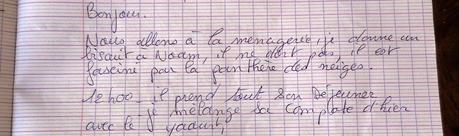 Bonjour.
Nous allons à la menagerie, je donne un
biscuit a Naam, il ne dort pas il est
fasciné par la panthère des neiges.
12h00 - il prend tout son Dejeuner
je mélange sa compote d'hier
avec le yaourt,